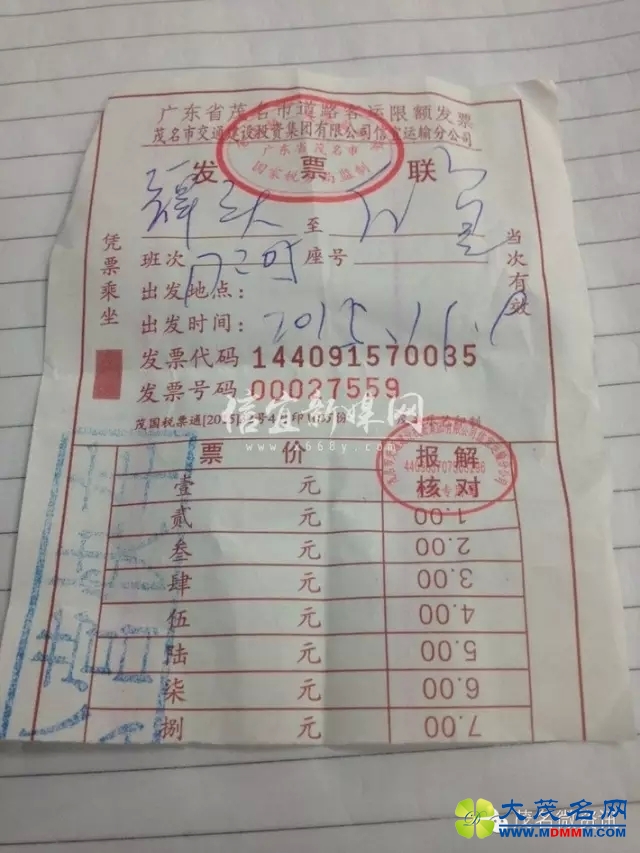 广东省茂名市道路客运限额发票
茂名市交通建设投资集团有限公司信宜运输分公司
广东省茂名市
国家税务局监制
发票联
至
班次 座号
出发地点：
出发时间：2015.11.
凭票乘坐
当次有效
发票代码 144091570035
发票号码 00027559
信宜新媒网
票价 报解核对
壹 元 1.00
贰 元 2.00
叁 元 3.00
肆 元 4.00
伍 元 5.00
陆 元 6.00
柒 元 7.00
捌 元
大茂名网
WWW.MDMMM.COM